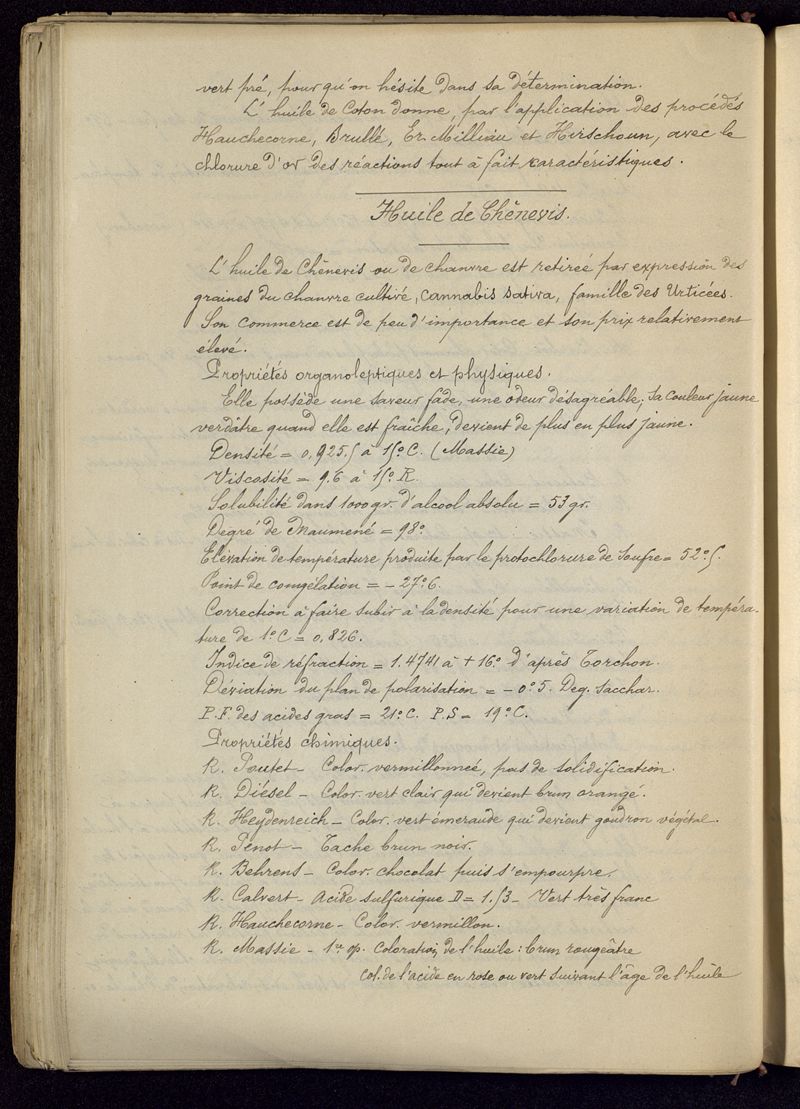 vert pré, pour qu'on hésite dans sa détermination.
L'huile de Coton donne, par l'application des procédés
Hauchecorne, Brullé, Er. Milliau et Hirschoun, avec le
chlorure d'or des réactions tout à fait karactéristiques.
Huile de Chênevis.
L'huile de Chênevis ou de chanvre est retirée par expression des
graines du chanvre cultivé, cannabis sativa, famille des Urticées.
Son commerce est de peu d'importance et son prix relativement
élevé.
Propriétés organoleptiques et physiques.
Elle possède une saveur fade, une odeur désagréable; sa couleur jaune
verdâtre quand elle est fraîche, devient de plus en plus jaune.
Densité = 0,925.5 à 15° C. (Massie)
Viscosité = 9.6 à 15° R.
Solubilité dans 1000 gr. d'alcool absolu = 53 gr.
Degré de Maumené = 98°
Elévation de température produite par le protochlorure de Soufre = 52° 5.
Point de congélation = - 27° 6.
Correction à faire subir à la densité pour une variation de tempéra-
ture de 1° C = 0,826.
Indice de réfraction = 1.4741 à + 16° d'après Torchon.
Déviation du plan de polarisation = - 0° 5. Deg. Sacchar.
P.F. des acides gras = 21° C. P.S = 19° C.
Propriétés chimiques.
R. Poutet - Color. vermillonnée, pas de solidification.
R. Diésel - Color. vert clair qui devient brun orangé.
R. Heydenreich - Color. vert émeraude qui devient goudron végétal.
R. Penot - Tache brun noir.
R. Behrens - Color. chocolat puis s'empourpre.
R. Calvert - Acide sulfurique D = 1.53 - Vert très franc
R. Hauchecorne - Color. vermillon.
R. Massie - 1re op. Coloration de l'huile : brun rougeâtre
Col. de l'acide en rose ou vert suivant l'âge de l'huile